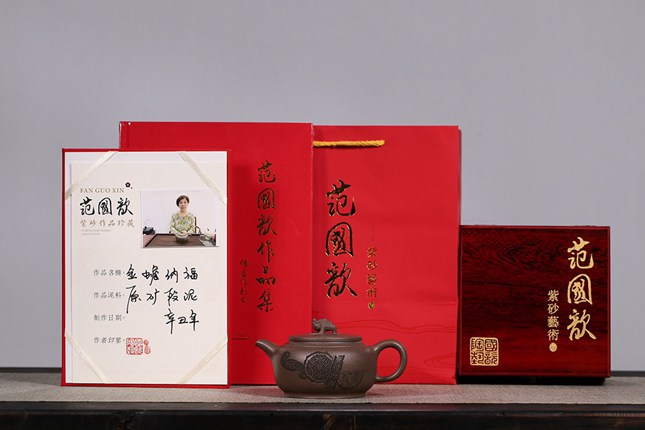 FAN GUO XIN
范國歆
紫砂作品珍藏
作品名稱：金蟾纳福
作品泥料：原矿段泥
制作日期：辛丑年
作者印鉴：
范國歆作品集
范國歆
紫砂藝術
范國歆
紫砂藝術